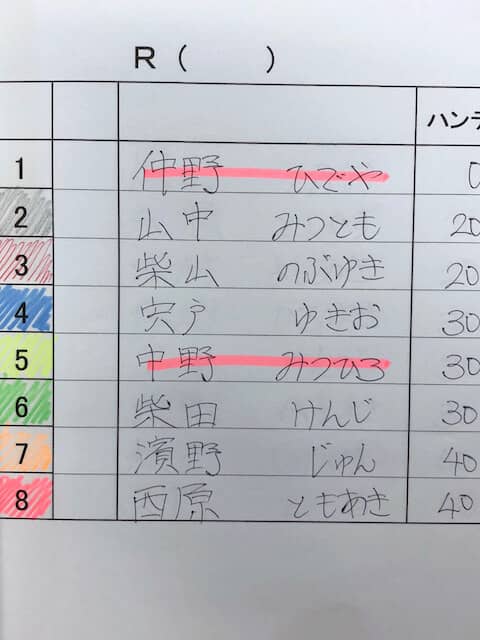 R (    )
ハンデ
1 仲野 ひでや 0
2 山中 みつとも 20
3 柴山 のぶゆき 20
4 宍戸 ゆきお 30
5 中野 みつひろ 30
6 柴田 けんじ 30
7 濱野 じゅん 40
8 西原 ともあき 40